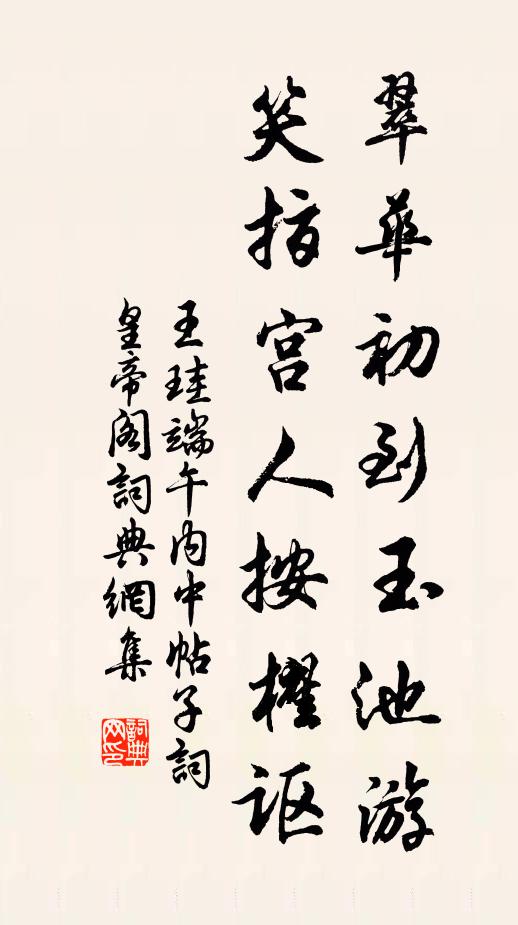 翠華初到玉池游
笑指宮人按櫂讴
王珪端午内中帖子詞
皇帝阁詞典網集
詞典网印